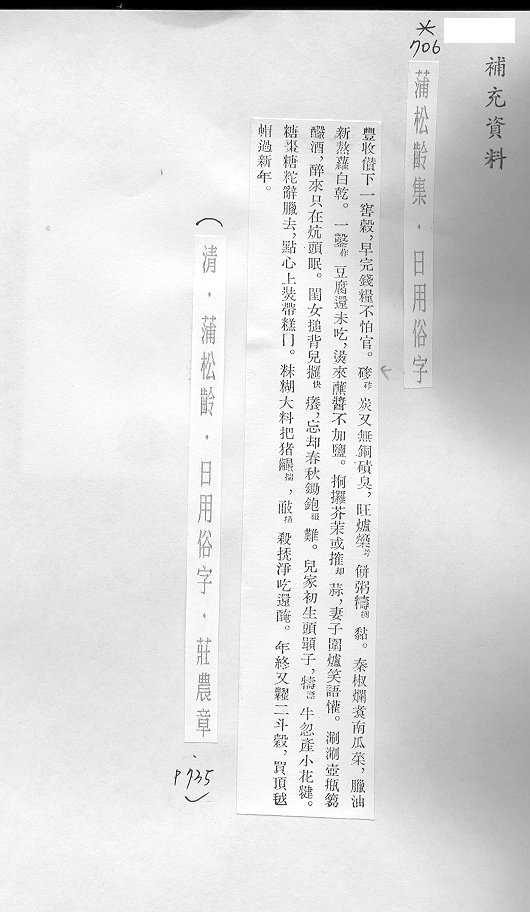 補充資料
*
706
蒲松齡集·日用俗字
豐收儹下一窖穀，早完錢糧不怕官。硶 炭又無銅磺臭，旺爐 餅粥 黏。秦椒爛煑南瓜菜，臘油
新熬蘿白乾。一 豆腐還未吃，燙來蘸醬不加鹽。拘攞芥茉或搉却 蒜，妻子圍爐笑語懽。涮涮壺瓶篘
酒，醉來只在炕頭眠。閨女搥背兒 快 癢，忘却春秋鋤鉋 難。兒家初生頭顋子， 牛忽產小花犍。
糖棗糖粔辭臘去，點心上 帶糕 。 糊大料把猪 ， 殺 淨吃還醃。年終又糶二斗穀，買頂毧
帽過新年。
（清·蒲松齡·日用俗字·莊農章
P735）